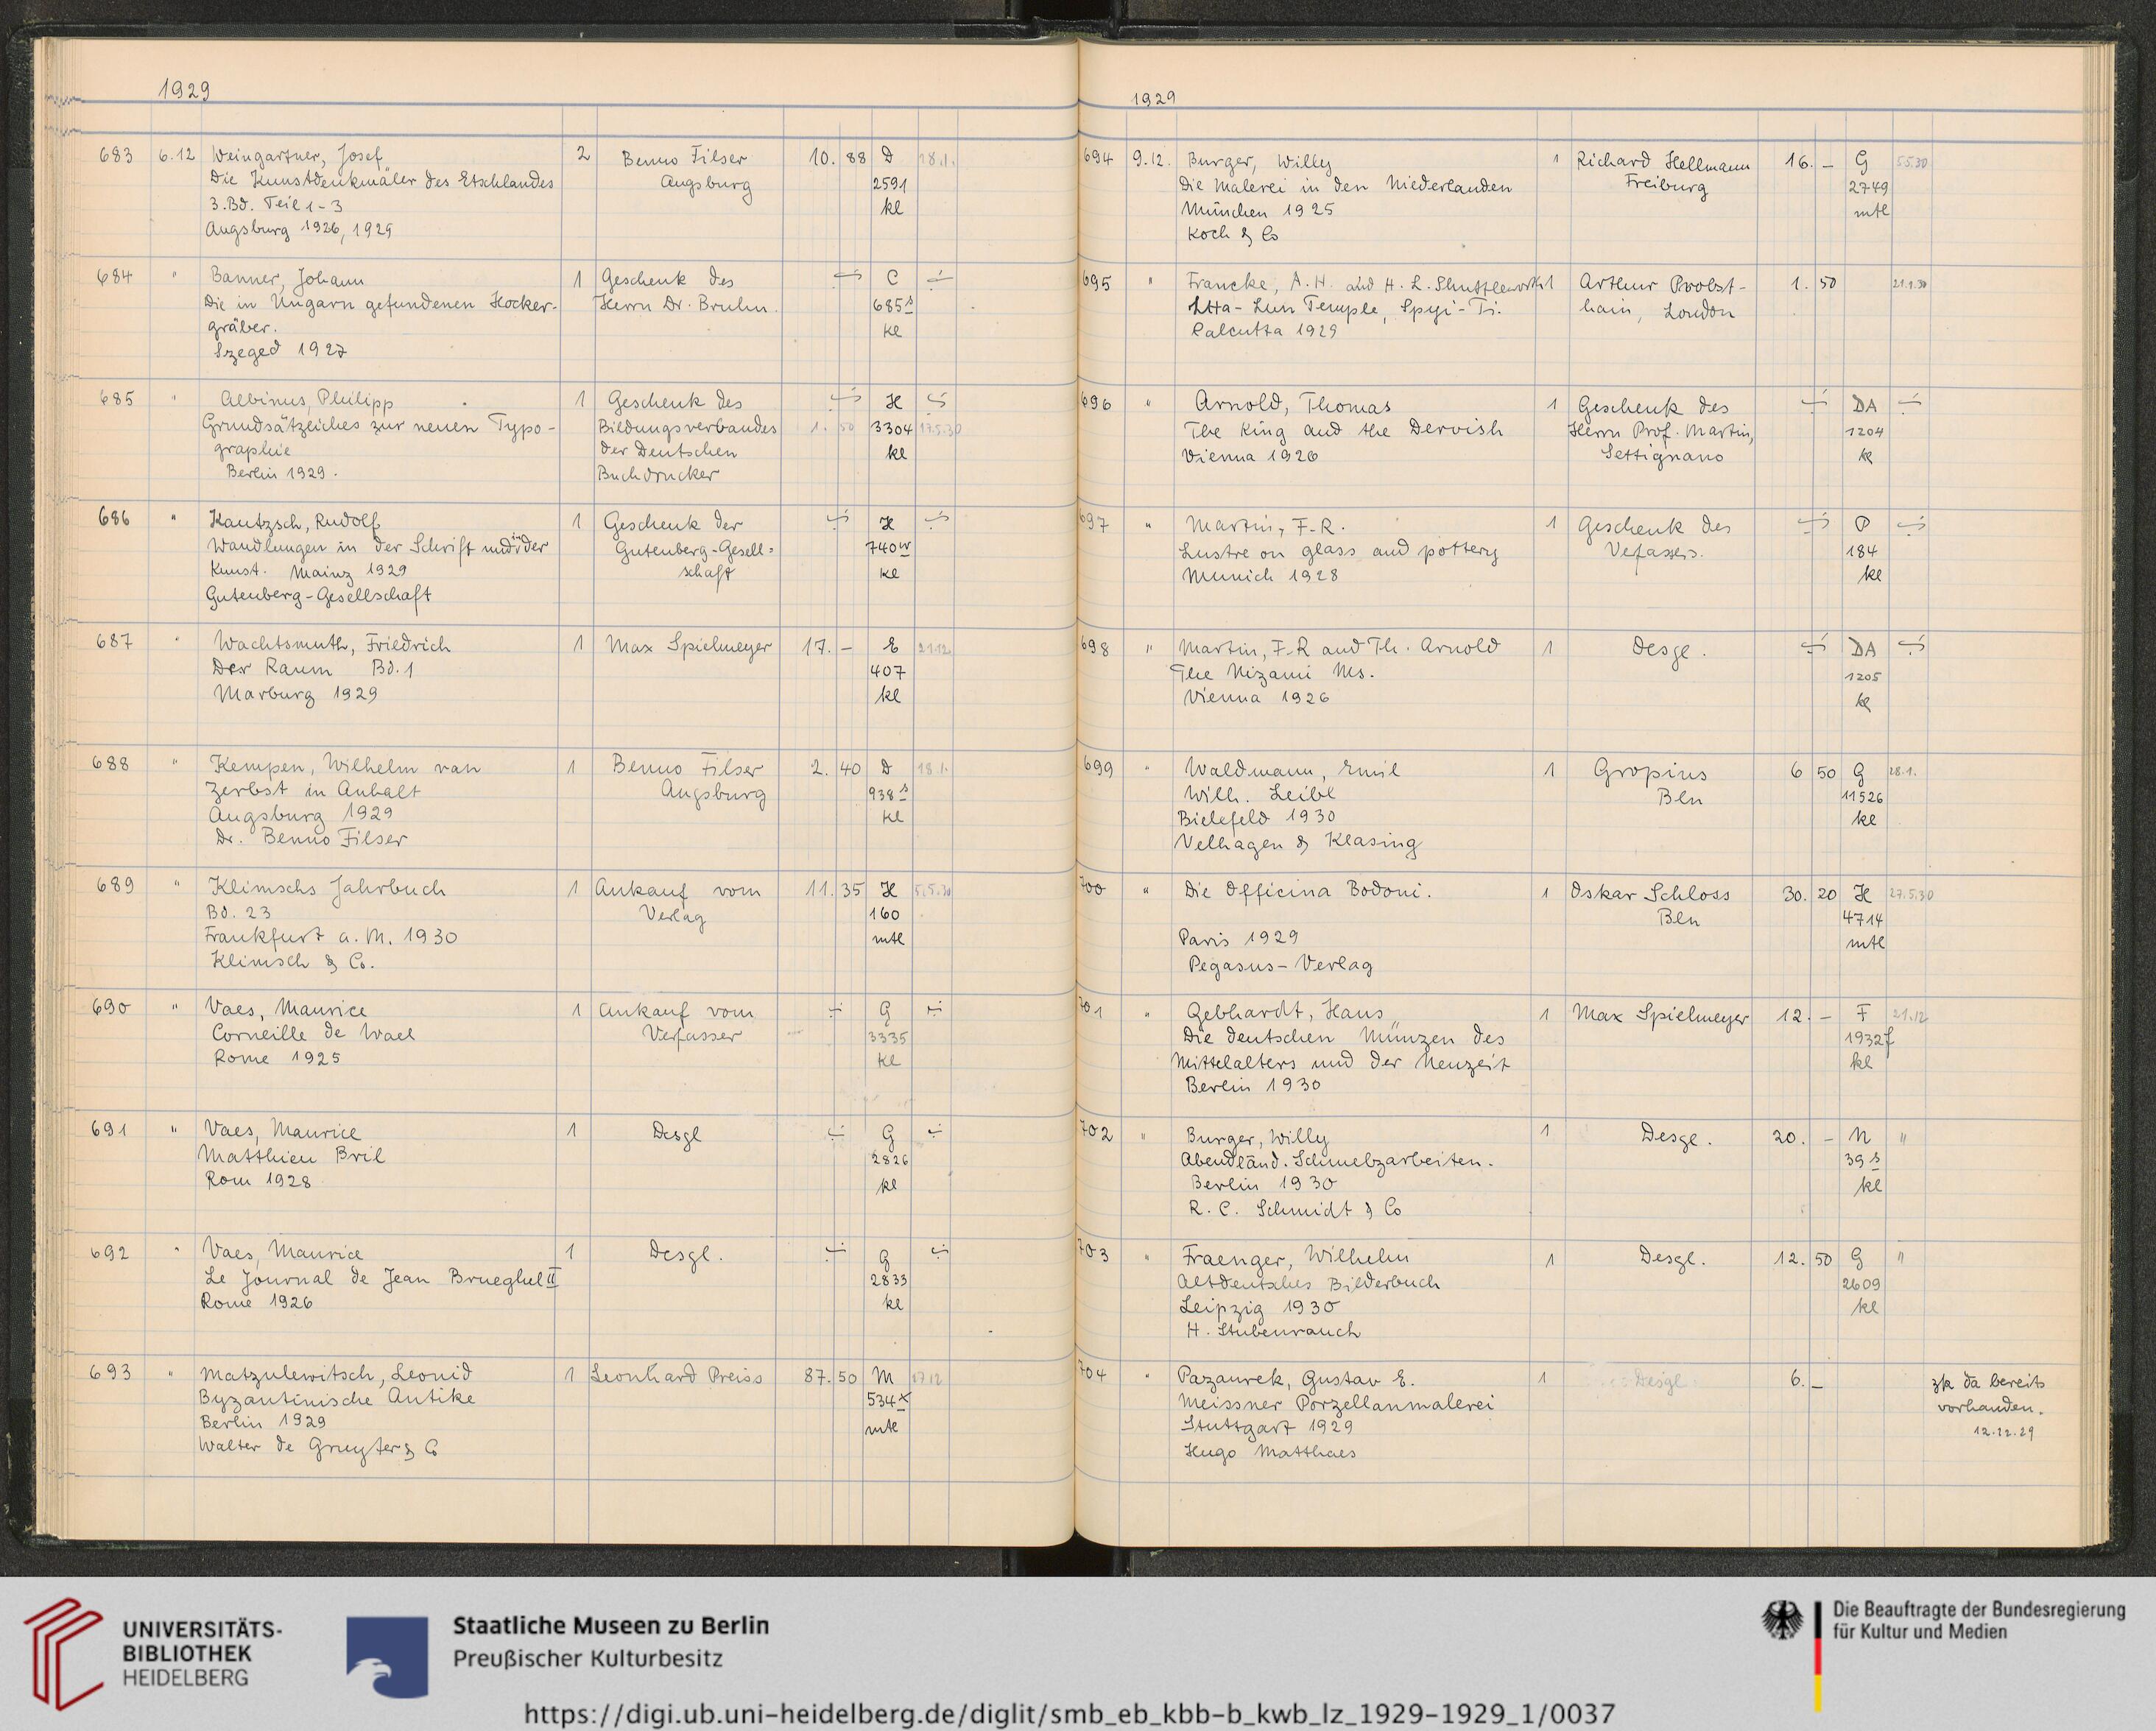 1929
683 6.12 Weingartner, Josef 2 Benno Filser 10. 88 D 18.1.
Die Kunstdenkmäler des Etschlandes Augsburg 2591
3. Bd. Teil 1-3 kl
Augsburg 1926, 1929
684 " Banner, Johann 1 Geschenk des C
Die in Ungarn gefundenen Hocker- Herrn Dr. Bruhn. 685 s
gräber. kl
Szeged 1927
685 " Albinus, Philipp 1 Geschenk des H
Grundsätzliches zur neuen Typo- Bildungsverbandes 1. 50 3304 17.5.30
graphie der Deutschen kl
Berlin 1929. Buchdrucker
686 " Kautzsch, Rudolf 1 Geschenk der H
Wandlungen in der Schrift und in der Gutenberg-Gesell= 740 w
Kunst. Mainz 1929 schaft kl
Gutenberg-Gesellschaft
687 " Wachtsmuth, Friedrich 1 Max Spielmeyer 17. - E 21.12
Der Raum Bd. 1 407
Marburg 1929 kl
688 " Kempen, Wilhelm van 1 Benno Filser 2. 40 D 18.1.
Zerbst in Anhalt Augsburg 938 s
Augsburg 1929 kl
Dr. Benno Filser
689 " Klimschs Jahrbuch 1 Ankauf vom 11. 35 H 5.5.30
Bd. 23 Verlag 160
Frankfurt a. M. 1930 mtl
Klimsch & Co.
690 " Vaes, Maurice 1 Ankauf vom G
Corneille de Wael Verfasser 3335
Rome 1925 kl
691 " Vaes, Maurice 1 Desgl G
Matthieu Bril 2826
Rom 1928 kl
692 " Vaes, Maurice 1 Desgl. G
Le Journal de Jean Brueghel II 2833
Rome 1926 kl
693 " Matzulewitsch, Leonid 1 Leonhard Preiss 87. 50 M 17.12
Byzantinische Antike 534 x
Berlin 1929 mtl
Walter de Gruyter & Co
1929
694 9.12. Burger, Willy 1 Richard Hellmann 16. - G 5.5.30
Die Malerei in den Niederlanden Freiburg 2749
München 1925 mtl
Koch & Co
695 " Francke, A. H. and H. L. Shuttleworth 1 Arthur Probst- 1. 50 21.1.30
Lha-Lun Temple, Spyi-Ti. hain, London
Calcutta 1929
696 " Arnold, Thomas 1 Geschenk des DA
The King and the Dervish Herrn Prof. Martin, 1204
Vienna 1926 Settignano kl
697 " Martin, F. R. 1 Geschenk des P
Lustre on glass and pottery Vefassers. 184
Munich 1928 kl
698 " Martin, F. R and Th. Arnold 1 Desgl. DA
The Nizami Ms. 1205
Vienna 1926 kl
699 " Waldmann, Emil 1 Gropius 6 50 G 28.1.
Wilh. Leibl Bln 11526
Bielefeld 1930 kl
Velhagen & Klasing
700 " Die Officina Bodoni. 1 Oskar Schloss 30. 20 H 27.5.30
Bln 4714
Paris 1929 mtl
Pegasus-Verlag
701 " Gebhardt, Hans 1 Max Spielmeyer 12. - F 21.12
Die deutschen Münzen des 1932 f
Mittelalters und der Neuzeit kl
Berlin 1930
702 " Burger, Willy 1 Desgl. 20. - N "
Abendländ. Schmelzarbeiten. 39 s
Berlin 1930 kl
R. C. Schmidt & Co
703 " Fraenger, Wilhelm 1 Desgl. 12. 50 G "
Altdeutsches Bilderbuch 2609
Leipzig 1930 kl
H. Stubenrauch
704 " Pazaurek, Gustav E. 1 Desgl 6. - zk da bereits
Meissner Porzellanmalerei vorhanden.
Stuttgart 1929 12.12.29
Hugo Matthaes
UNIVERSITÄTS-
BIBLIOTHEK
HEIDELBERG
Staatliche Museen zu Berlin
Preußischer Kulturbesitz
Die Beauftragte der Bundesregierung
für Kultur und Medien
https://digi.ub.uni-heidelberg.de/diglit/smb_eb_kbb-b_kwb_lz_1929-1929_1/0037